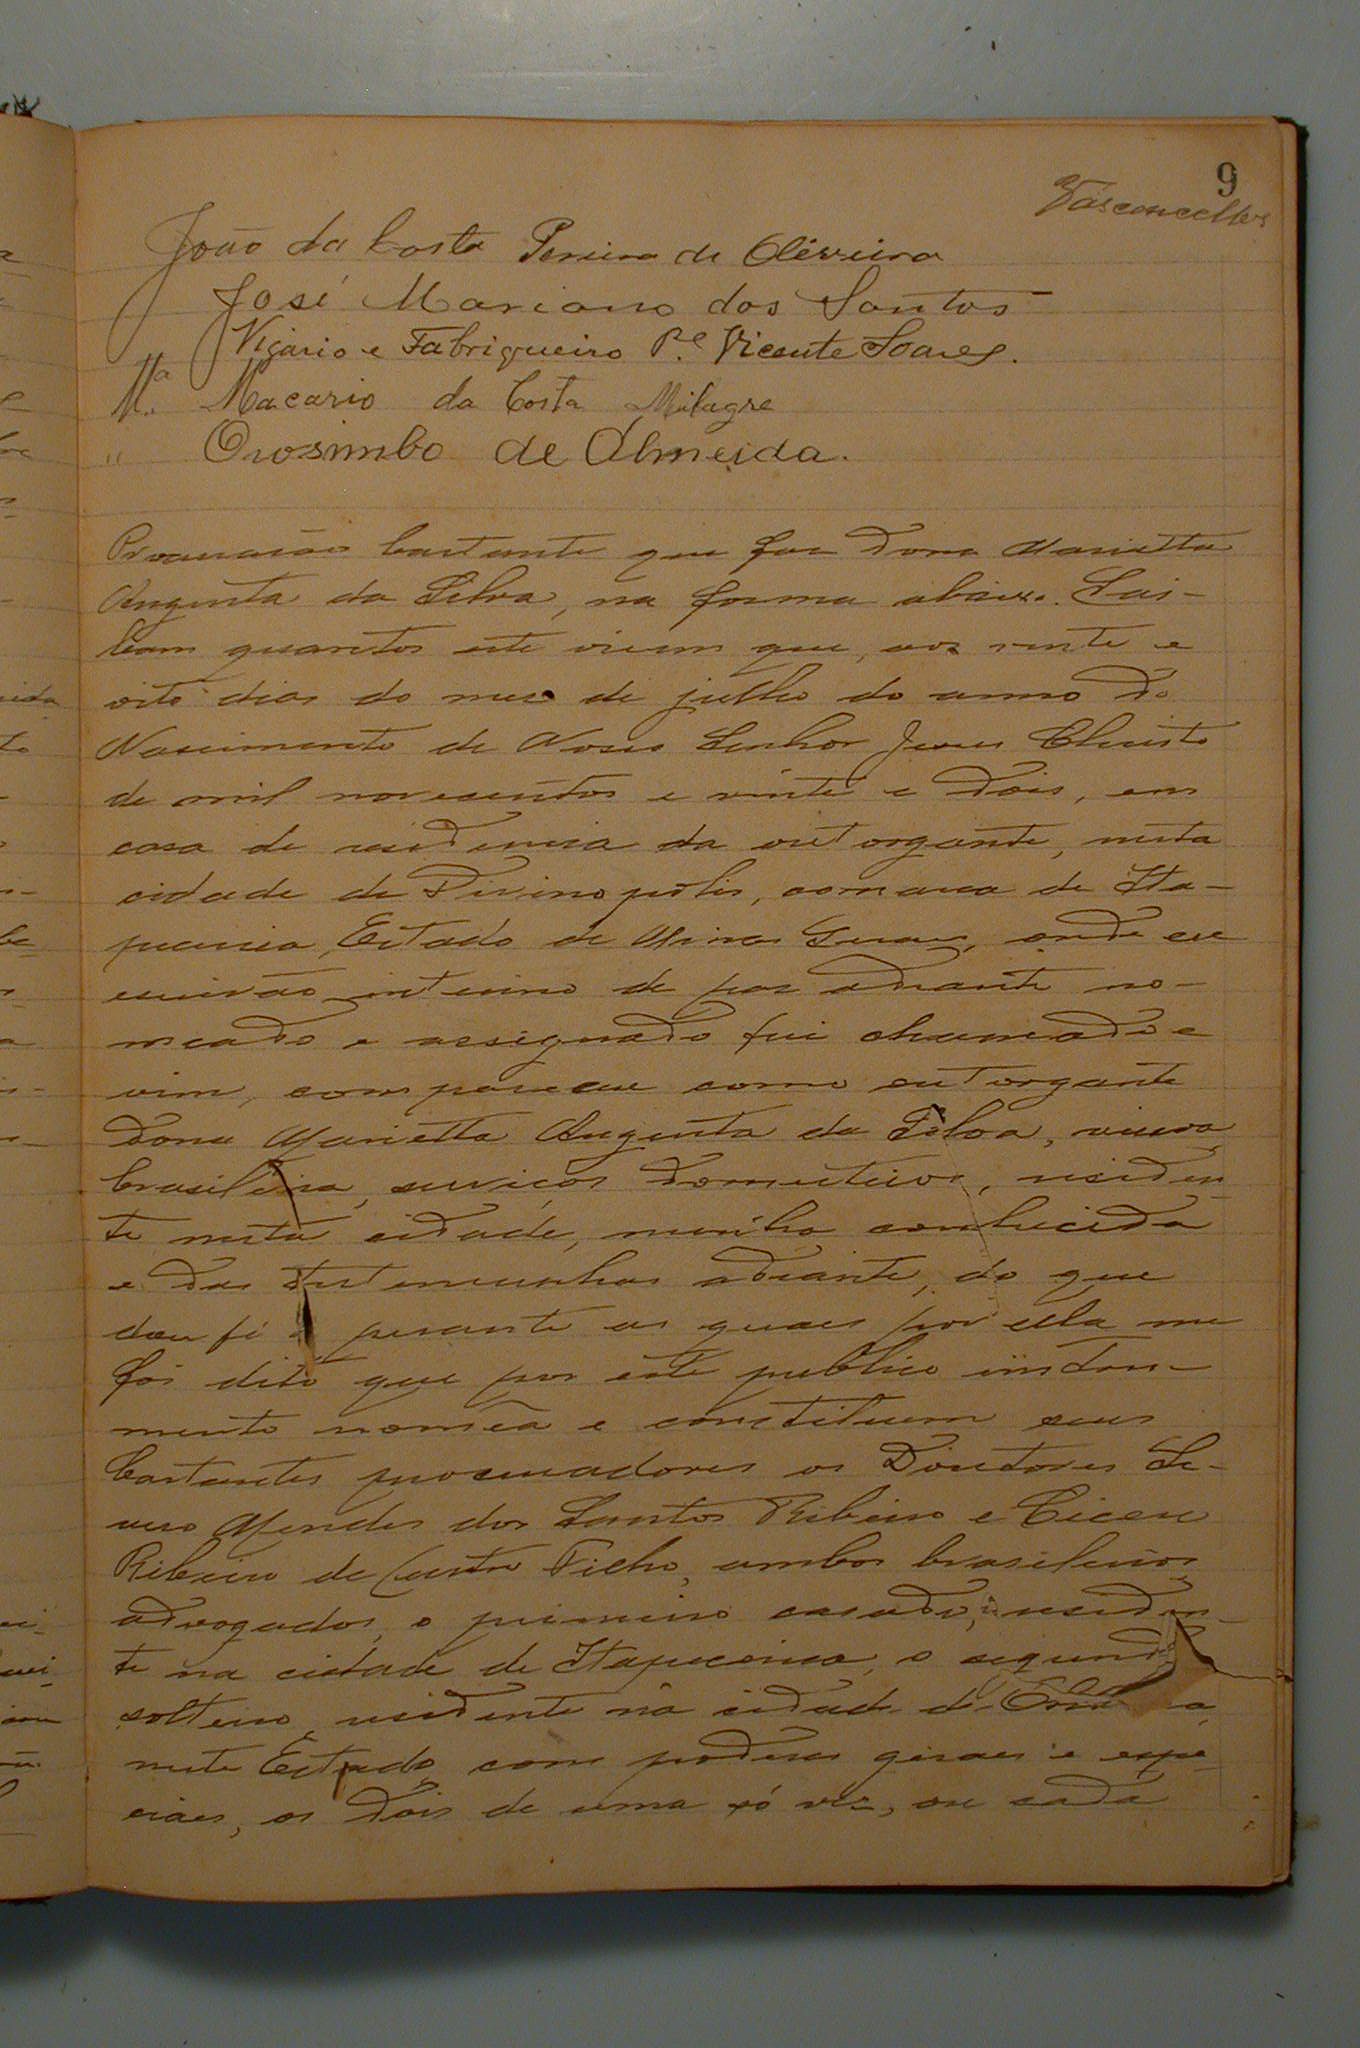 9
Vasconcellos
João da Costa Pereira de Oliveira
José Mariano dos Santos
Vigario e Fabriqueiro Pe. Vicente Soares.
Ma. Macario da Costa Milagre
" Orosimbo de Almeida.
Procuração bastante que faz Dona Marietta
Augusta da Silva, na forma abaixo. Sai-
bam quantos este virem que, aos vinte e
oito dias do mez de julho do anno do
Nascimento de Nosso Senhor Jesus Christo
de mil novesentos e vinte e dois, em
casa de residencia da outorgante, nesta
cidade de Divinopolis, comarca de Ita-
pecerica, Estado de Minas Geraes, onde eu
escrivão interino de paz adiante no-
meado e assignado fui chamado e
vim, compareceu como outorgante
Dona Marietta Augusta da Silva, viuva,
brasileira, serviços domesticos, residen-
te nesta cidade, minha conhecida
e das testemunhas adiante, do que
dou fé e perante as quaes por ella me
foi dito que por este publico instru-
mento nomêa e constituem seus
bastantes procuradores os Doutores Se-
vero Mendes dos Santos Ribeiro e Cicero
Ribeiro de Castro Filho, ambos brasileiros,
advogados, o primeiro casado, residen-
te na cidade de Itapecerica, o segundo
solteiro, residente na cidade de
neste Estado, com poderes geraes e espe-
ciaes, os dois de uma só vez, ou cada